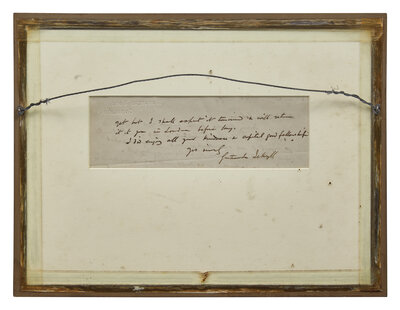 yet but I shall expect it tomorrow & will return
it to you in London before long.
I did enjoy all your kindness & capital good fellowship
yrs sincerely
Gertrude Jekyll